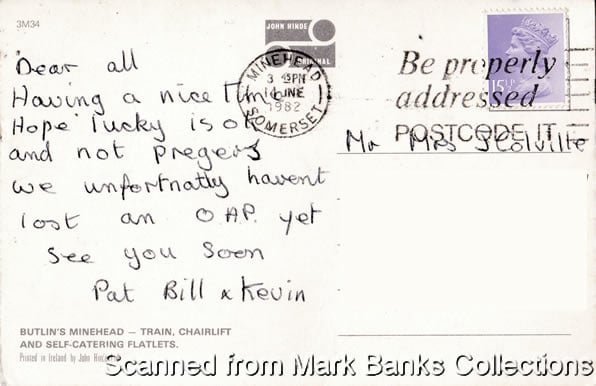 3M34
JOHN HINDE
ORIGINAL
Dear all
Having a nice time
Hope lucky is ok
and not pregers
we unfortnatly havent
lost an O.A.P. yet
see you soon
Pat Bill & Kevin
MINEHEAD
3 PM
JNE
1982
SOMERSET
Be properly
addressed
POSTCODE IT
15½P
Mr Mrs J Colville
BUTLIN'S MINEHEAD — TRAIN, CHAIRLIFT
AND SELF-CATERING FLATLETS.
Printed in Ireland by John Hinde
Scanned from Mark Banks Collections